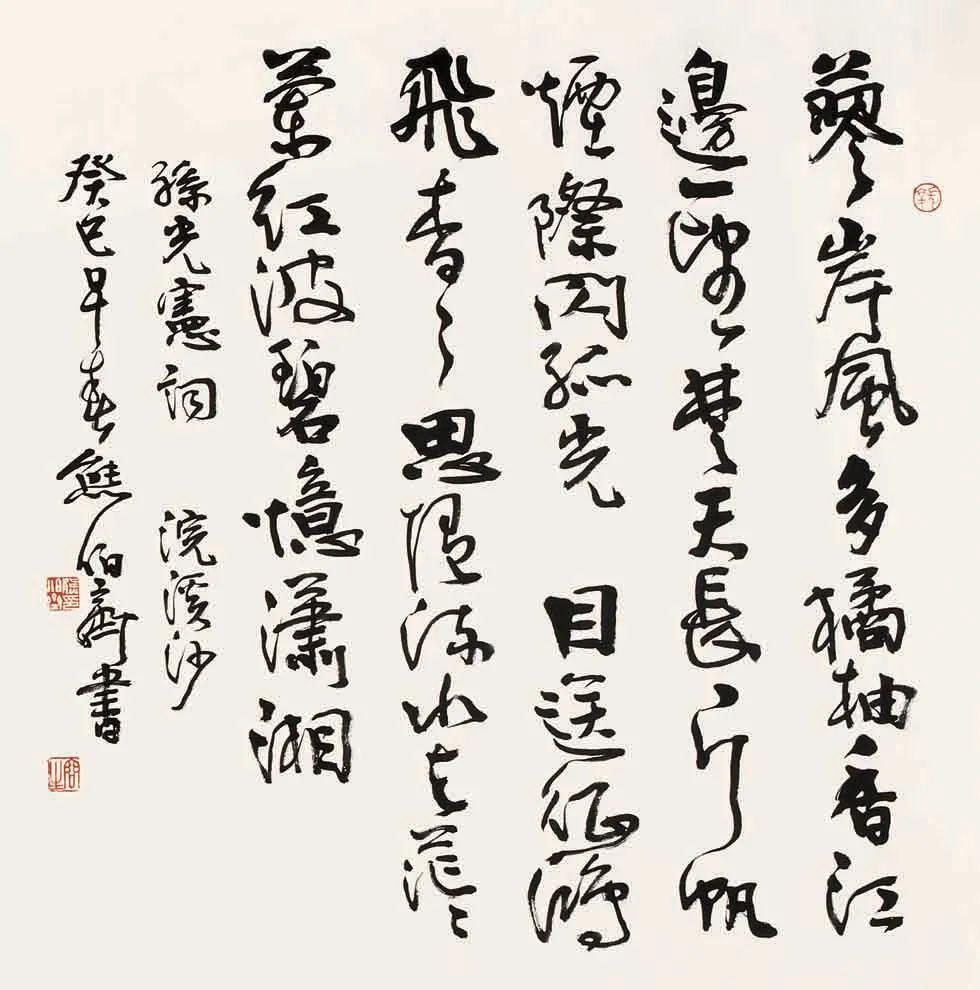 蓼岸風多橘柚香江
邊一望楚天長片帆
煙際閃孤光 目送征鴻
飛杳〻思隨流水去茫〻
蘭紅波碧憶瀟湘
孫光憲詞 浣溪沙
癸巳早春熊伯齊書